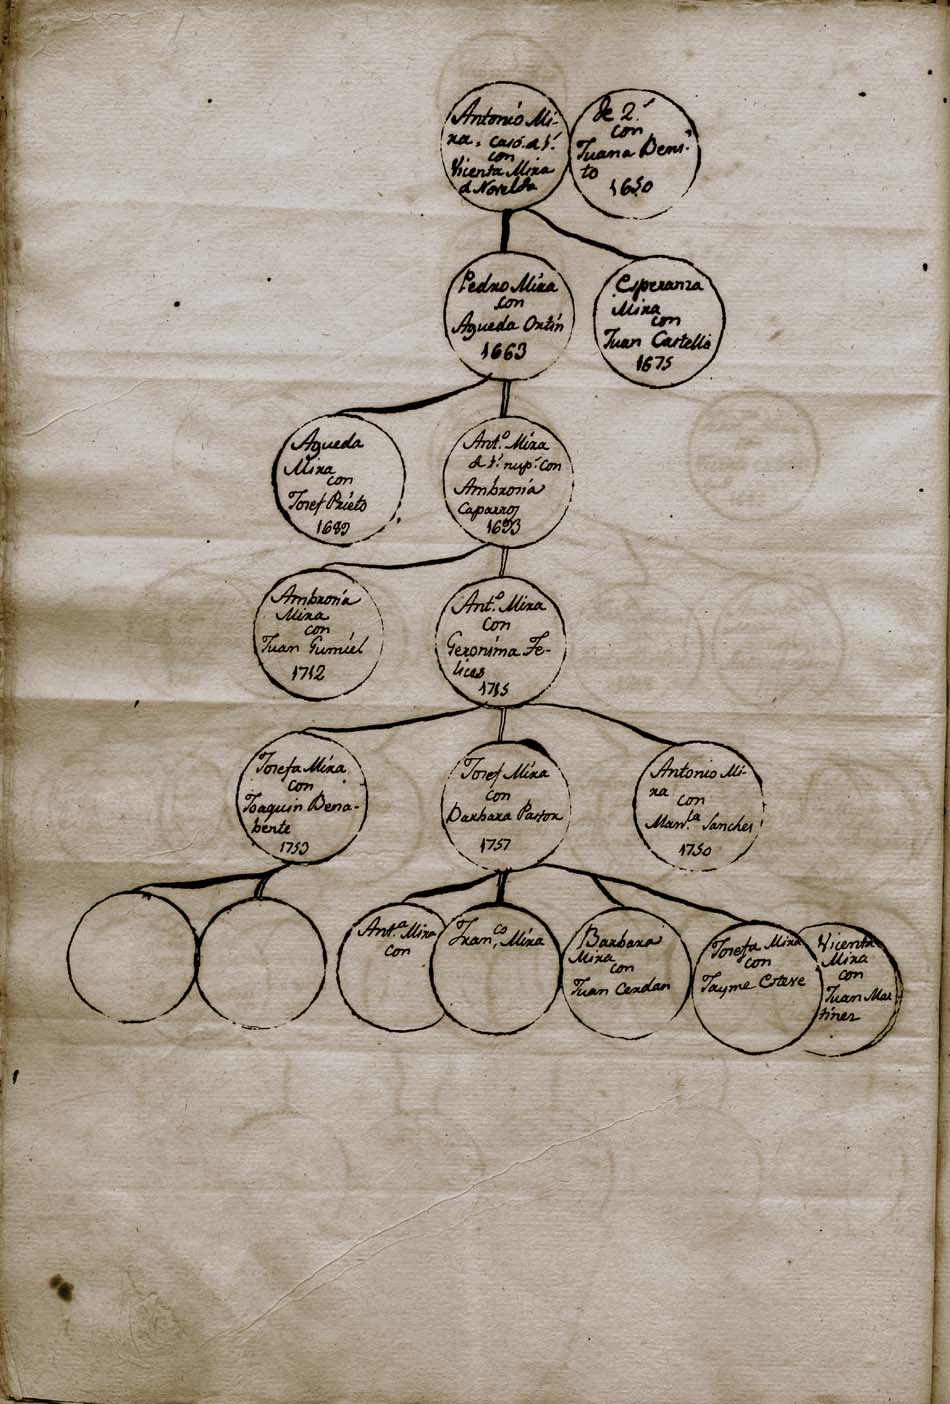 Antonio Mi-
ra, casó d 1ª
con
Vicenta Mira
d Novelda
de 2ª
con
Juana Beni-
to
1650
Pedro Mira
con
Agueda Ortin
1663
Esperanza
Mira
con
Juan Castello
1675
Agueda
Mira
con
Josef Prieto
1689
Antº Mira
d 1ª nupª con
Ambrosia
Caparros
1693
Ambrosia
Mira
con
Juan Gumiel
1712
Antº Mira
con
Geronima Fe-
lices
1715
Josefa Mira
con
Joaquin Bena-
bente
1753
Josef Mira
con
Barbara Pastor
1757
Antonio Mi-
ra
con
Manˡᵃ Sanches
1750
Antª Mira
con
Francᵒ Mira
Barbara
Mira
con
Juan Cerdan
Josefa Mira
con
Jayme Esteve
Vicenta
Mira
con
Juan Mar
tinez